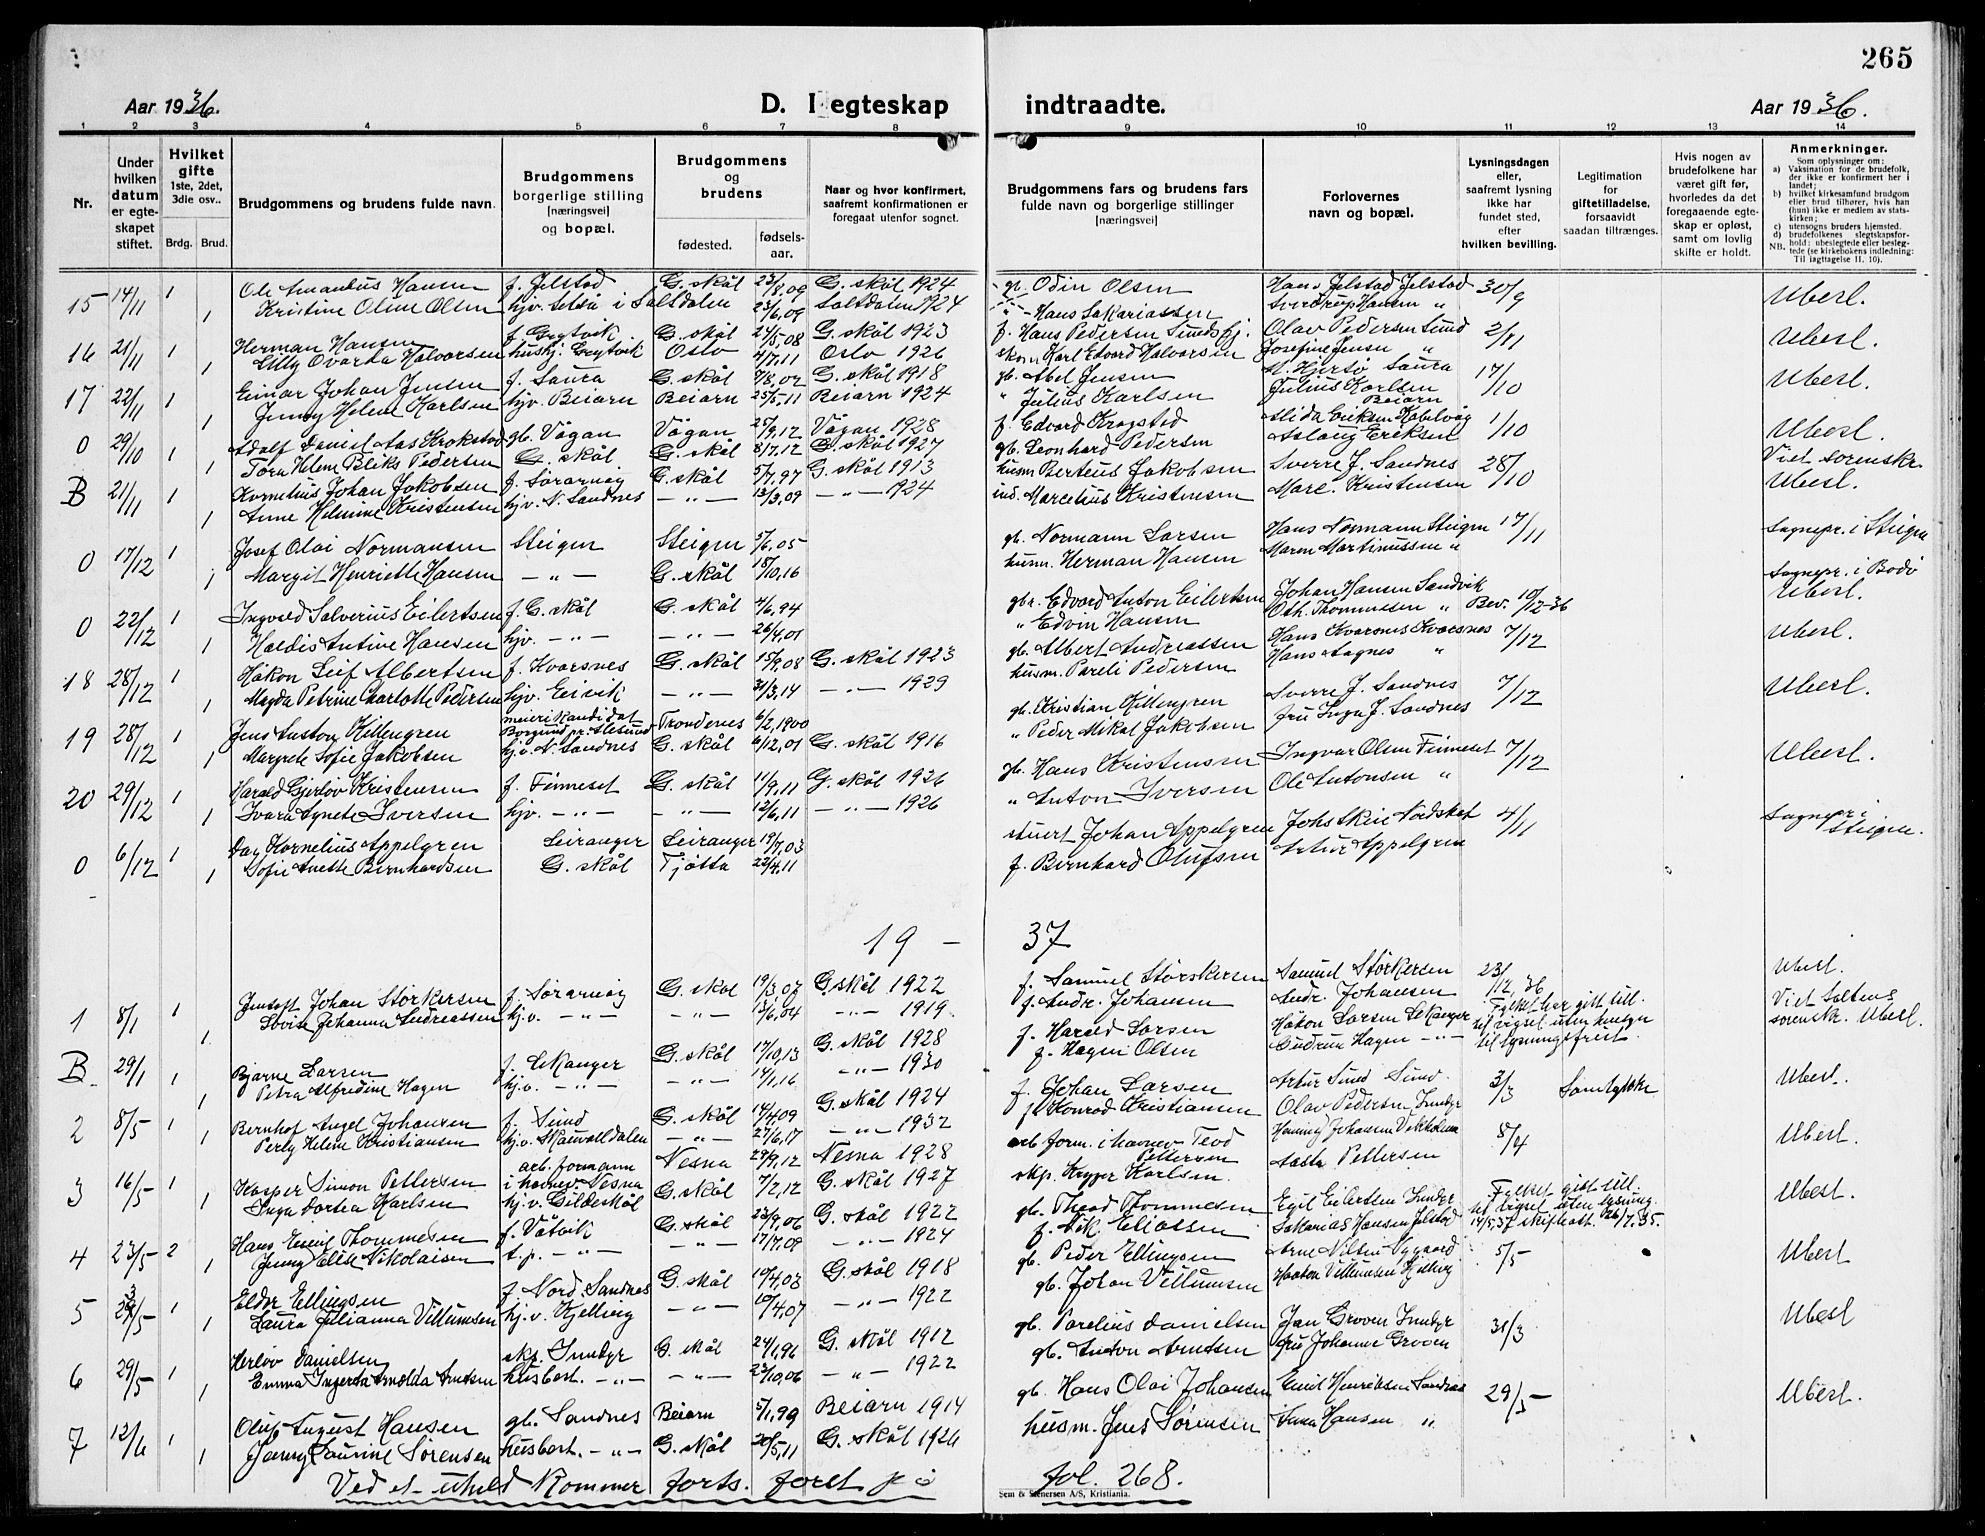 265
Aar 1936.
D. I egteskap indtraadte.
Aar 1936.
1 2 3 4 5 6 7 8 9 10 11 12 13 14
Nr.
Under hvilken datum er egte-skapet stiftet.
Hvilket gifte 1ste, 2det, 3die osv..
Brdg. Brud.
Brudgommens og brudens fulde navn.
Brudgommens borgerlige stilling [næringsvei] og bopæl.
Brudgommens og brudens
fødested. fødsels-aar.
Naar og hvor konfirmert, saafremt konfirmationen er foregaat utenfor sognet.
Brudgommens fars og brudens fars fulde navn og borgerlige stillinger [næringsvei]
Forlovernes navn og bopæl.
Lysningsdagen eller, saafremt lysning ikke har fundet sted, efter hvilken bevilling.
Legitimation for giftetilladelse, forsaavidt saadan tiltrænges.
Hvis nogen av brudefolkene har været gift før, hvorledes da det foregaaende egte-skap er opløst, samt om lovlig skifte er holdt.
Anmerkninger.
Som oplysninger om:
a) Vaksination for de brudefolk, der ikke er konfirmert her i landet;
b) hvilket kirkesamfund brudgom eller brud tilhører, hvis han (hun) ikke er medlem av stats-kirken;
c) utensogns bruders hjemsted.
d) brudefolkenes slegtskapsfor-hold: ubeslegtede eller besleg-tede (se kirkebokens indledning: Til iagttagelse II. 10).
NB.
15 14/11 1 Ole Amandus Hansen f. Jelstad G. skål 23/8,09 G. skål 1924 gb. Odin Olsen Hans Jelstad Jelstad 30/9 Ubesl.
1 Kristine Oline Olsen hjv. Setså i Saltdalen 23/6,09 Saltdalen 1924 Hans Sakariassen Sverdrup Hansen "
16 21/11 1 Herman Hansen f. Grytvik G. skål 24/5,08 G. skål 1923 f. Hans Pedersen Sundsfj. Olav Pedersen Sund 2/11 Ubesl.
1 Lilly Ovarda Halvorsen hushj. Grytvik Oslo 4/7,11 Oslo 1926 skom. Karl Edvard Halvorsen Josefine Jensen "
17 22/11 1 Einar Johan Jensen f. Saura G. skål 7/8,02 G. skål 1918 gb. Abel Jensen M. Hjersø Saura 17/10 Ubesl.
1 Jenny Helene Karlsen hjv. Beiarn Beiarn 25/5,11 Beiarn 1924 " Julius Karlsen Julius Karlsen Beiarn
0 29/10 1 Adolf Daniel Aas Krokstad gb. Vågan Vågan 25/9,12 Vågan 1928 f. Edvard Krogstad Alida Eriksen Kabelvåg 1/10 Ubesl.
1 Tora Helene Bliks Pedersen G. skål G. skål 8/7,12 G. skål 1927 gb. Leonhard Pedersen Aslaug Eriksen Viet sorenskr.
B 21/11 1 Kornelius Johan Jakobsen f. Sørarnøy G. skål 5/7,97 G. skål 1913 husm. Berteus Jakobsen Sverre J. Sandnes 28/10 Ubesl.
1 Anne Helmine Kristensen hjv. N. Sandnes - " - 13/3,09 - " - 1924 ind. Marcelius Kristensen Marc. Kristensen
0 17/12 1 Josef Olai Normansen Steigen Steigen 5/6,05 gb. Normann Larsen Hans Normann Steigen 17/11 Sognepr. i Steigen
1 Margit Henriette Hansen - " - G. skål 18/10,16 husm. Herman Hansen Maren Martinussen "
0 22/12 1 Ingvald Salverius Eilertsen f. G. skål G. skål 4/6,94 gbr. Edvard Anton Eilertsen Johan Hansen Sandvik Bev. 10/12-36 Sognepr. i Bodø Ubesl.
1 Haldis Antine Hansen hjv. - " - - " - 26/4,01 " Edvin Hansen Oth. Thommesen "
18 28/12 1 Håkon Leif Albertsen f. Kvarsnes G. skål 15/9,08 G. skål 1923 gb. Albert Andreassen Hans Kvarsnes Kvarsnes 7/12 Ubesl.
1 Magda Petrine Charlotte Pedersen hjv. Eivik - " - 31/3,14 - " - 1929 husm. Pareli Pedersen Hans Aagnes "
19 28/12 1 Jens Gustav Killengren meierikandidat Borgund pr. Ålesund Trondenes 6/2,1900 gb. Kristian Killengren Sverre J. Sandnes 7/12 Ubesl.
1 Margrete Sofie Jakobsen hjv. N. Sandnes G. skål 6/12,01 G. skål 1916 " Peder Mikal Jakobsen fru Inga J. Sandnes
20 29/12 1 Harald Gjerløv Kristensen f. Finneset G. skål 11/9,11 G. skål 1926 gb. Hans Kristensen Ingvar Olsen Finneset 7/12 Ubesl.
1 Ivara Agnete Iversen hjv. - " - - " - 12/6,11 - " - 1926 " Anton Iversen Ole Antonsen "
0 6/12 1 Dag Kornelius Appelgren Leiranger Leiranger 19/7,03 stuert Johan Appelgren Johs Skeie Nordskot 4/11 Sognepr. i Steigen.
1 Sofie Anette Bernhardsen G. skål Tjøtta 22/4,11 f. Bernhard Olufsen Artur Appelgren
19 - 37
1 8/1 1 Jentoft Johan Størkersen f. Sørarnøy G. skål 19/3,07 G. skål 1922 f. Samuel Størkersen Samuel Størkersen 23/12,36 Ubesl.
1 Lovise Johanna Andreassen hj.v. - " - - " - 13/6,04 - " - 1919. f. Andr. Johansen Andr. Johansen
B. 29/1 1 Bjarne Larsen f. Lekanger G. skål 17/10,13 G. skål 1928 f. Harald Larsen Håkon Larsen Lekanger Fylket har gitt till. til vigsel uten hensyn til lysningsfrist. Viet Saltens sorenskr. Ubesl.
1 Petra Alfredine Hagen hj.v. - " - - " - 14/1,16 - " - 1930 f. Hagen Olsen Gudrun Hagen - " -
2 8/5 1 Bernhof Angel Johansen f. Sund G. skål 14/4,09 G. skål 1924 f. Johan Larsen Artur Sund Sund. 3/3 Samtykke Ubesl.
1 Perly Helene Kristiansen hj.v. Skauvolldalen - " - 27/6,17 - " - 1932 Konrad Kristiansen Olav Pedersen Inndyr
3 16/5 1 Kasper Simon Pettersen arb. formann i havnev. Nesna Nesna 29/9,12 Nesna 1928 arb. form. i havnev. Teod Pettersen Henning Johansen 8/4 Ubesl.
1 Inga Dortea Karlsen hj.v. Gildeskål G. skål 7/2,12 G. skål 1927 skp. Karlsen Aasta Pettersen
4 23/5 2 Hans Emil Thommesen f. Våtvik G. skål 23/9,06 G. skål 1922 gb. Thord Thommesen Egil Eilertsen Inndyr Fylket gitt till. til vigsel uten lysning. 14/5,37 skif. att. 26/7.35. Ubesl.
1 Jenny Elise Nikolaisen t.p. - " - - " - 17/7,09 - " - 1924 f. Nik. Eliassen Sakarias Hansen Jelstad
5 23/5 1 Eldor Ellingsen f. Nord. Sandnes G. skål 10/4,03 G. skål 1918 gb. Peder Ellingsen Arne Nilsen Nygaard 5/5 Ubesl
1 Laura Julianna Villumsen hj.v. Kjelling - " - 10/4,07 - " - 1922 gb. Johan Villumsen Haakon Villumsen Kjelling
6 29/5 1 Herlov Danielsen skp. Inndyr G. skål 24/1,96 G. skål 1912 gb. Parelius Danielsen Jan Groven Inndyr 31/3 Ubesl
1 Emma Ingerda Arnolda Arntsen husbest. - " - - " - 23/10,06 - " - 1922 gb. Anton Arntsen fru Johanne Groven
7 12/6 1 Oluf August Hansen gb. Sandnes Beiarn 5/1,99 Beiarn 1914 gb. Hans Olai Johansen Emil Henriksen Sandnes 29/5 Ubesl.
1 Jenny Laurine Sørensen husbest. - " - G. skål 20/5,11 G. skål 1926 husm. Jens Sørensen Anna Hansen "
Ved et uheld kommer forts. først på fol. 268.
Sem & Stenersen A/S, Kristiania.